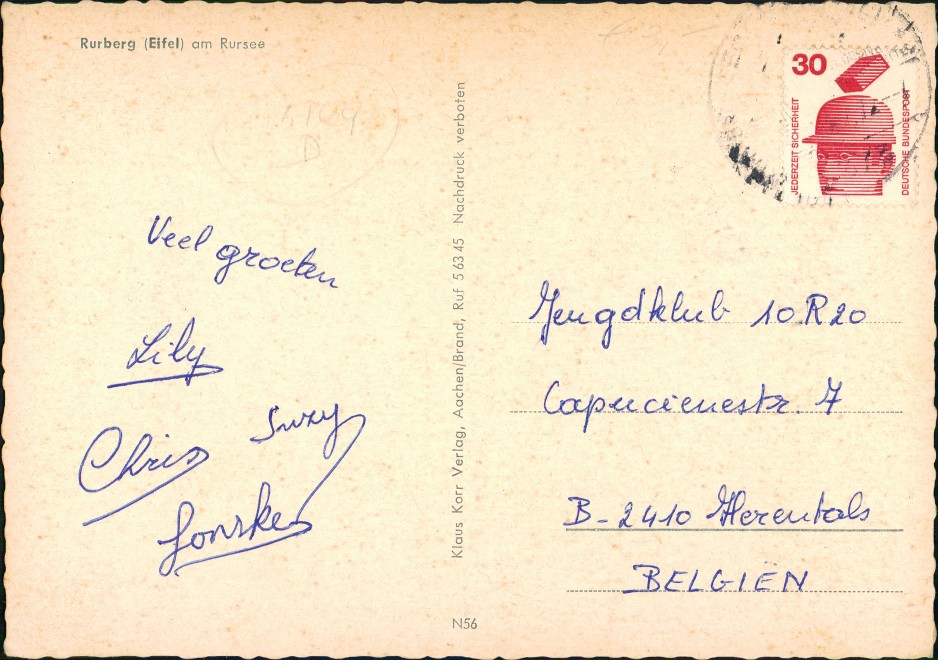 Rurberg (Eifel) am Rursee
30
JEDERZEIT SICHERHEIT
DEUTSCHE BUNDESPOST
Veel groeten
Lily
Suzy
Chris
Klaus Korr Verlag, Aachen/Brand, Ruf 5 63 45 Nachdruck verboten
Jeugdklub 10R20
Capucienestr. 7
B-2410 Herentals
BELGIËN
N56